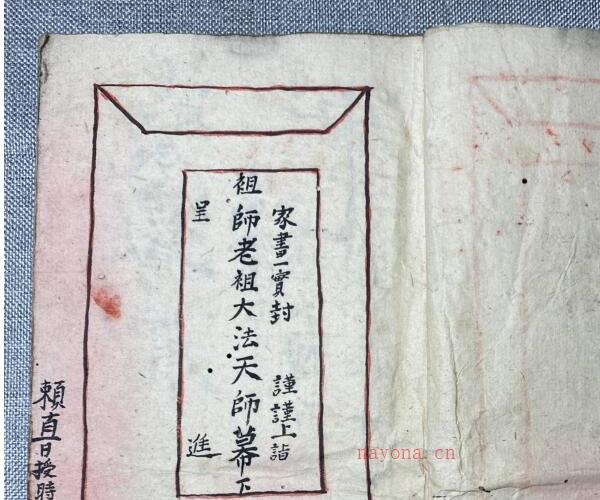 家書一實封　謹謹上詣
祖師老祖大法天師幕下
呈　進
賴直日授時
nayona.cn